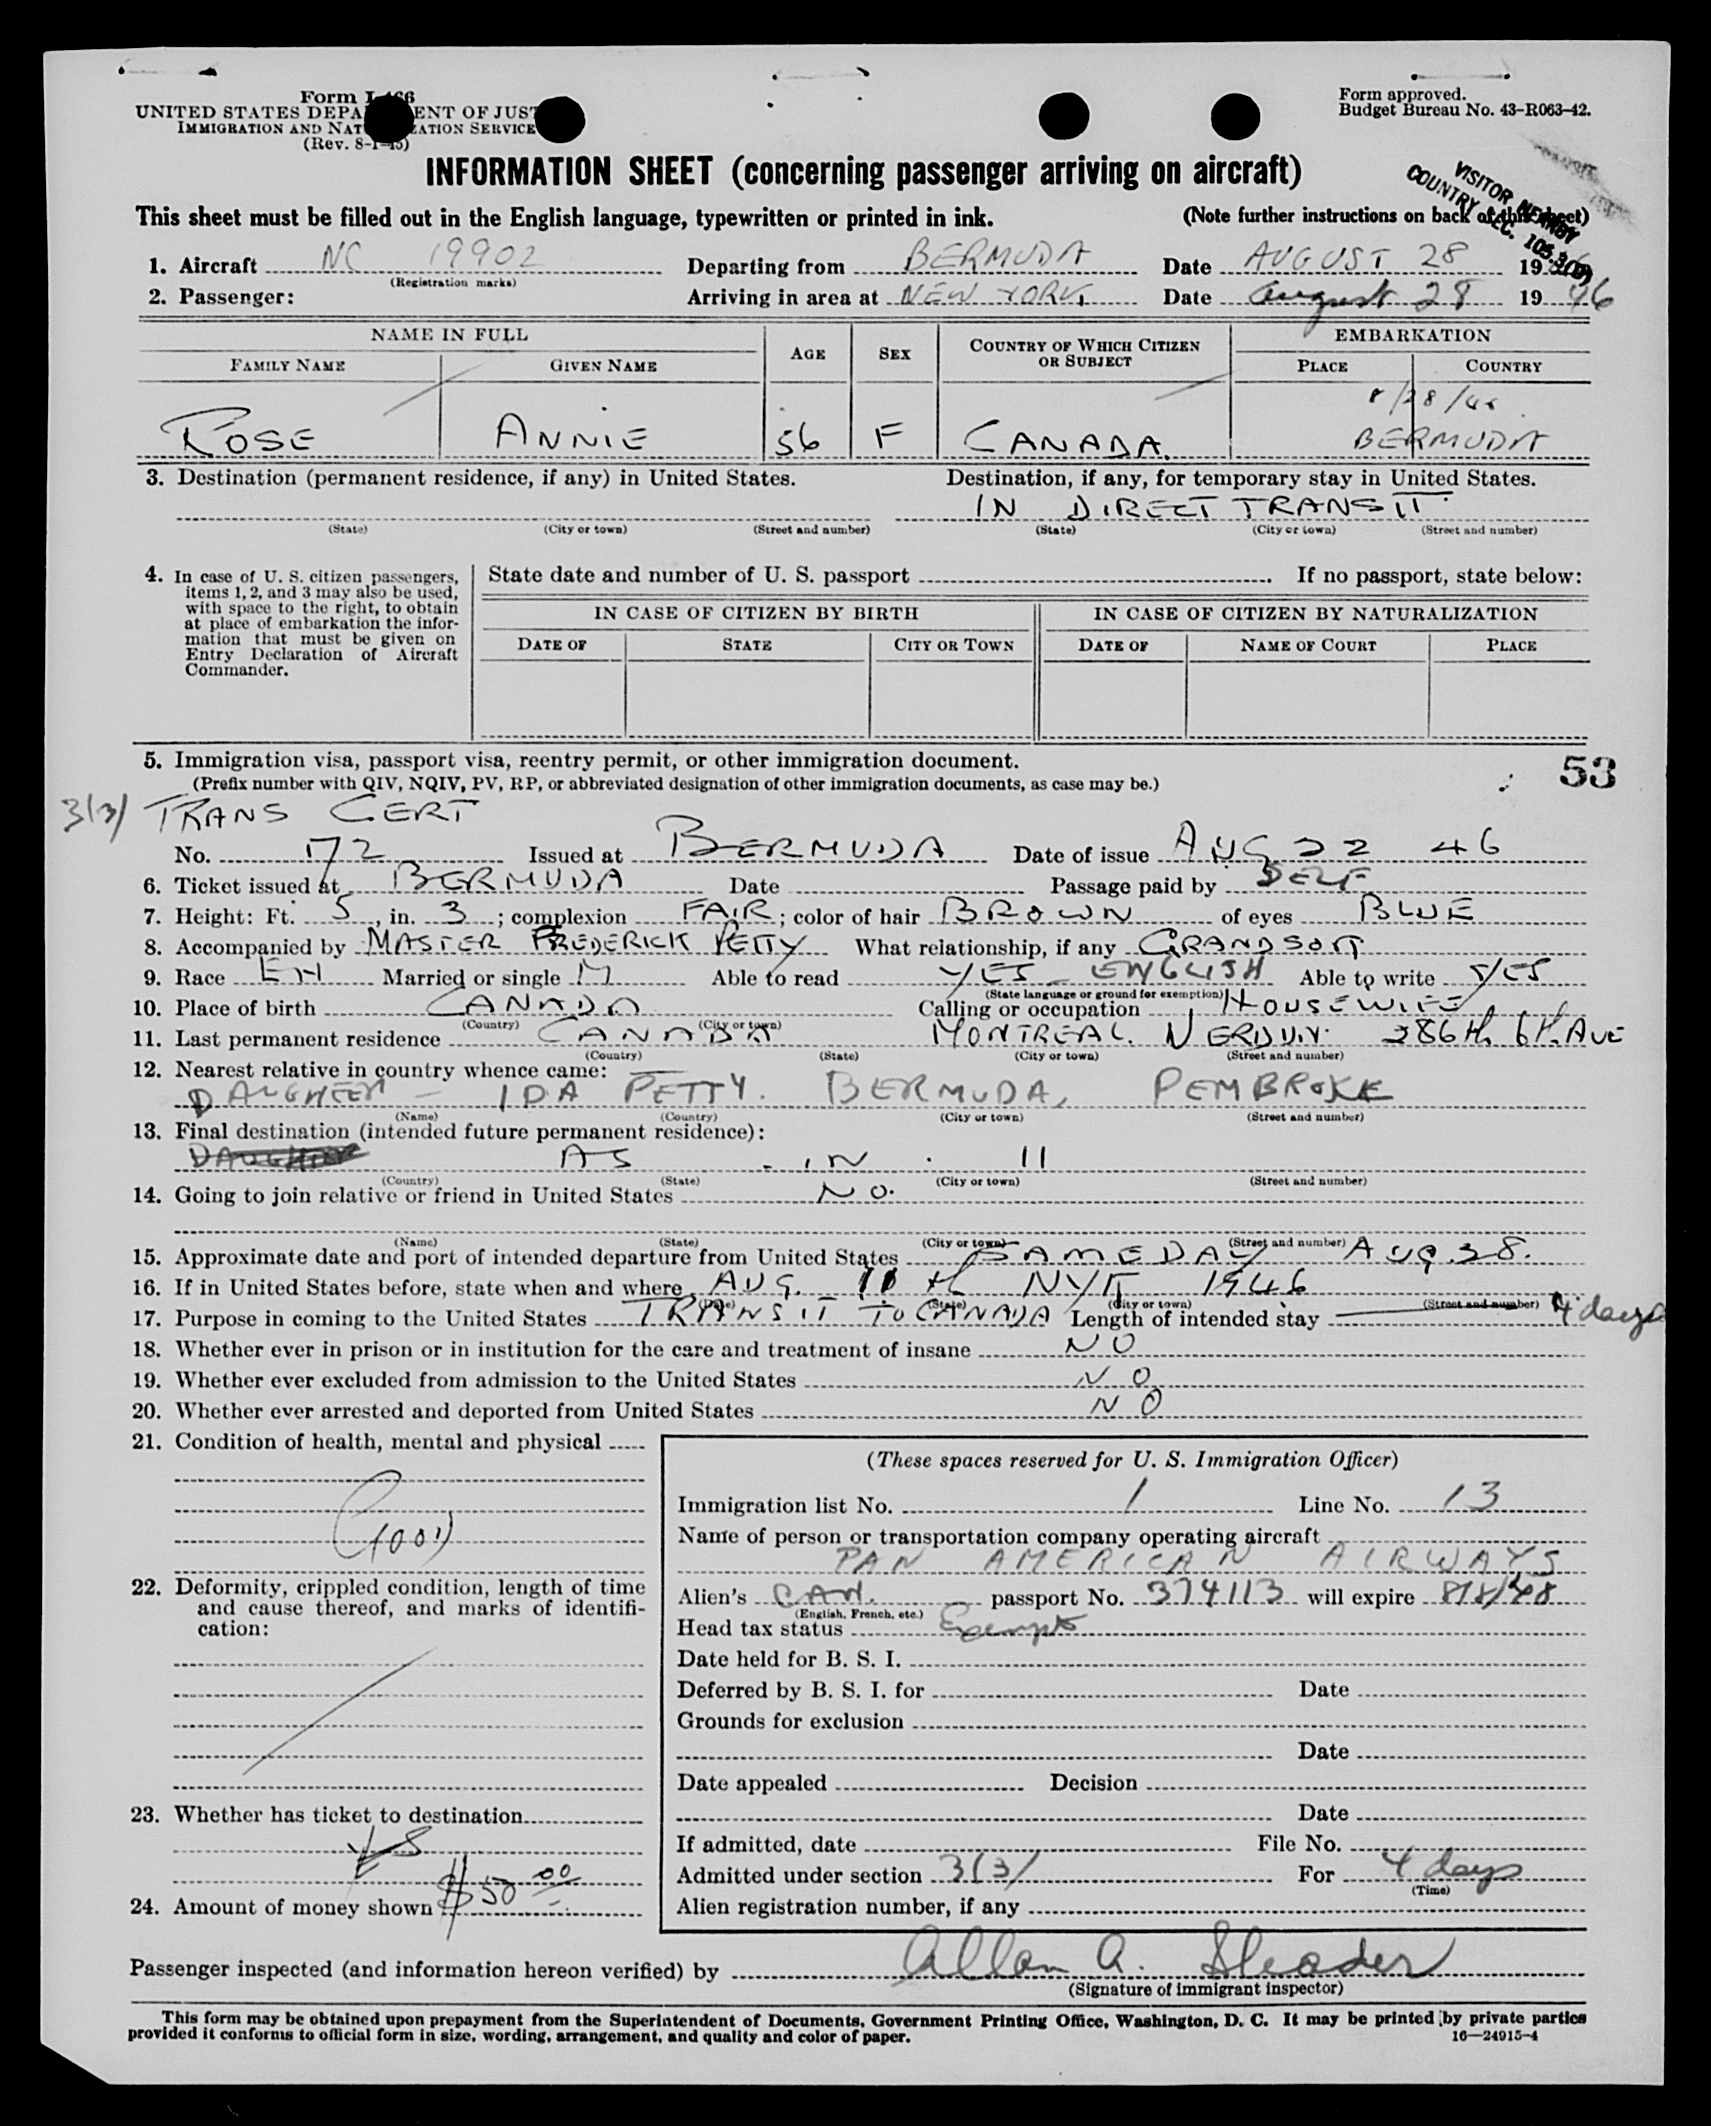 Form I-466
UNITED STATES DEPARTMENT OF JUSTICE
IMMIGRATION AND NATURALIZATION SERVICE
(Rev. 8-1-45)
Form approved.
Budget Bureau No. 43-R063-42.
INFORMATION SHEET (concerning passenger arriving on aircraft)
VISITOR NEARBY
COUNTRY SEC.
This sheet must be filled out in the English language, typewritten or printed in ink. (Note further instructions on back of this sheet)
1. Aircraft NC 19902 Departing from BERMUDA Date AUGUST 28 19
(Registration marks)
2. Passenger: Arriving in area at NEW YORK, Date August 28 19 46
NAME IN FULL AGE SEX COUNTRY OF WHICH CITIZEN OR SUBJECT EMBARKATION
FAMILY NAME GIVEN NAME PLACE COUNTRY
8/28/46
ROSE ANNIE 56 F CANADA. BERMUDA
3. Destination (permanent residence, if any) in United States. Destination, if any, for temporary stay in United States.
IN DIRECT TRANSIT
(State) (City or town) (Street and number) (State) (City or town) (Street and number)
4. In case of U. S. citizen passengers, items 1, 2, and 3 may also be used, with space to the right, to obtain at place of embarkation the information that must be given on Entry Declaration of Aircraft Commander.
State date and number of U. S. passport . If no passport, state below:
IN CASE OF CITIZEN BY BIRTH IN CASE OF CITIZEN BY NATURALIZATION
DATE OF STATE CITY OR TOWN DATE OF NAME OF COURT PLACE
5. Immigration visa, passport visa, reentry permit, or other immigration document. 53
(Prefix number with QIV, NQIV, PV, RP, or abbreviated designation of other immigration documents, as case may be.)
3(3) TRANS CERT
No. 172 Issued at BERMUDA Date of issue AUG 22 46
6. Ticket issued at BERMUDA Date Passage paid by SELF
7. Height: Ft. 5, in. 3; complexion FAIR; color of hair BROWN of eyes BLUE
8. Accompanied by MASTER FREDERICK PETTY What relationship, if any GRANDSON
9. Race EN Married or single M Able to read YES - ENGLISH Able to write YES
(State language or ground for exemption)
10. Place of birth CANADA Calling or occupation HOUSEWIFE
(Country) (City or town)
11. Last permanent residence CANADA MONTREAL. VERDUN. 286th 6th AVE
(Country) (State) (City or town) (Street and number)
12. Nearest relative in country whence came:
DAUGHEER - IDA PETTY. BERMUDA, PEMBROKE
(Name) (Country) (City or town) (Street and number)
13. Final destination (intended future permanent residence):
AS IN 11
(Country) (State) (City or town) (Street and number)
14. Going to join relative or friend in United States NO.
(Name) (State) (City or town) (Street and number)
15. Approximate date and port of intended departure from United States SAME DAY AUG. 28.
16. If in United States before, state when and where AUG. th NYK 1946
(Date) (State) (City or town) (Street and number)
17. Purpose in coming to the United States TRANSIT TO CANADA Length of intended stay 4 days
18. Whether ever in prison or in institution for the care and treatment of insane NO
19. Whether ever excluded from admission to the United States NO
20. Whether ever arrested and deported from United States NO
21. Condition of health, mental and physical
Good
22. Deformity, crippled condition, length of time and cause thereof, and marks of identification:
23. Whether has ticket to destination
YES
24. Amount of money shown $50 00
(These spaces reserved for U. S. Immigration Officer)
Immigration list No. 1 Line No. 13
Name of person or transportation company operating aircraft
PAN AMERICAN AIRWAYS
Alien's CAN. passport No. 374113 will expire 8/8/48
(English, French, etc.)
Head tax status Exempt
Date held for B. S. I.
Deferred by B. S. I. for Date
Grounds for exclusion
Date
Date appealed Decision
Date
If admitted, date File No.
Admitted under section 3(3) For 4 days
(Time)
Alien registration number, if any
Passenger inspected (and information hereon verified) by Allan A. Sleader
(Signature of immigrant inspector)
This form may be obtained upon prepayment from the Superintendent of Documents, Government Printing Office, Washington, D. C. It may be printed by private parties
provided it conforms to official form in size, wording, arrangement, and quality and color of paper. 16—24915-4